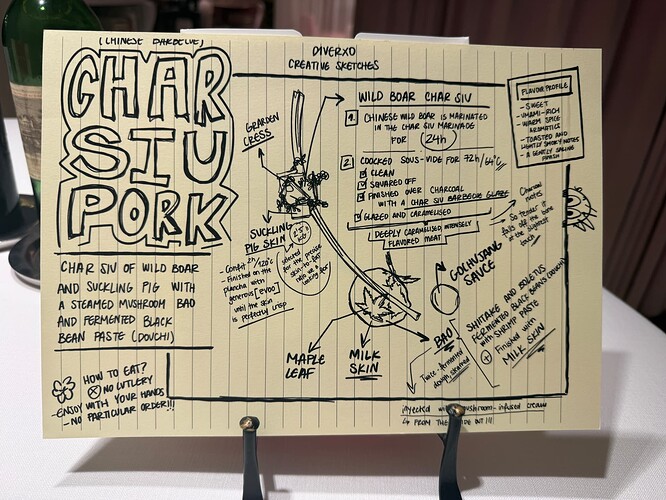 (CHINESE BARBECUE)
CHAR
SIU
PORK
CHAR SIU OF WILD BOAR
AND SUCKLING PIG WITH
A STEAMED MUSHROOM BAO
AND FERMENTED BLACK
BEAN PASTE (DOUCHI)
HOW TO EAT?
NO CUTLERY
-ENJOY WITH YOUR HANDS
- NO PARTICULAR ORDER!!!
DIVERXO
CREATIVE SKETCHES
GARDEN
CRESS
SUCKLING
PIG SKIN
- Confit 2h/120°c
- Finished on the
plancha with
generous [evoo]
until the skin
is perfectly crisp
selected
for the precise
skin-to-fat
MAPLE
LEAF
MILK
SKIN
WILD BOAR CHAR SIU
1. CHINESE WILD BOAR IS MARINATED
IN THE CHAR SIU MARINADE
FOR 24h
2. COOCKED SOUS-VIDE FOR 72h/64°C
CLEAN
SQUARED OFF
FINISHED OVER CHARCOAL
WITH A CHAR SIU BARBECUE GLAZE
GLAZED AND CARAMELISED
DEEPLY CARAMELISED INTENSELY
FLAVORED MEAT
FLAVOUR PROFILE
- SWEET
- UMAMI-RICH
- WARM SPICE
AROMATICS
- TOASTED AND
LIGHTLY SMOKY NOTES
- A GENTLY SALINE
FINISH
Charcoal
notes
- So tender it
falls off the bone
at the slightest
touch
GOCHUJANG
SAUCE
BAO
Twice-fermented
dough, steamed
SHIITAKE AND BOLETUS
FERMENTED BLACK BEANS (DOUCHI)
with SHRIMP PASTE
+ Finished with
MILK SKIN
injected with mushroom-infused cream
FROM THE SIDE INT !!!